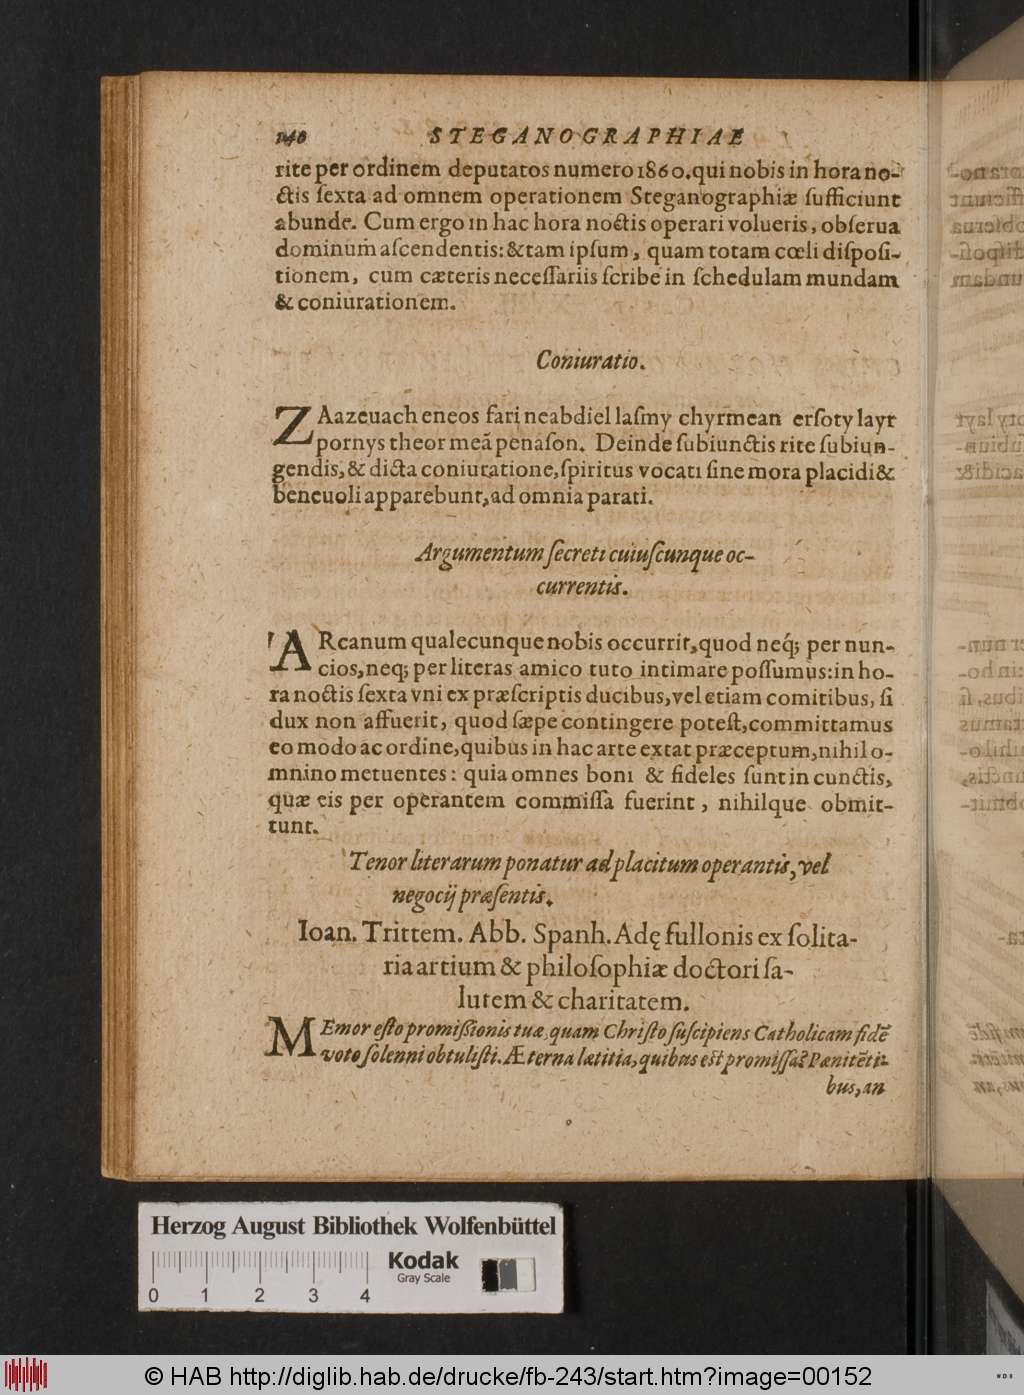 140 STEGANOGRAPHIAE
rite per ordinem deputatos numero 1860. qui nobis in hora no-
ctis ſexta ad omnem operationem Steganographiæ ſufficiunt
abunde. Cum ergo in hac hora noctis operari volueris, obſerua
dominum aſcendentis: & tam ipſum, quam totam cœli diſpoſi-
tionem, cum cæteris neceſſariis ſcribe in ſchedulam mundam
& coniurationem.
Coniuratio.
ZAazeuach eneos fari neabdiel laſmy chyrmean erſoty layr
pornys theor meã penaſon. Deinde ſubiunctis rite ſubiun-
gendis, & dicta coniuratione, ſpiritus vocati ſine mora placidi &
beneuoli apparebunt, ad omnia parati.
Argumentum ſecreti cuiuſcunque oc-
currentis.
ARcanum qualecunque nobis occurrit, quod neq́; per nun-
cios, neq; per literas amico tuto intimare poſſumus: in ho-
ra noctis ſexta vni ex præſcriptis ducibus, vel etiam comitibus, ſi
dux non affuerit, quod ſæpe contingere poteſt, committamus
eo modo ac ordine, quibus in hac arte extat præceptum, nihil o-
mnino metuentes: quia omnes boni & fideles ſunt in cunctis,
quæ eis per operantem commiſſa fuerint, nihilque obmit-
tunt.
Tenor literarum ponatur ad placitum operantis, vel
negocij præſentis.
Ioan. Trittem. Abb. Spanh. Adę fullonis ex ſolita-
ria artium & philoſophiæ doctori ſa-
lutem & charitatem.
MEmor eſto promiſſionis tuæ, quam Chriſto ſuſcipiens Catholicam fidẽ
voto ſolenni obtuliſti. Æterna lætitia, quibus eſt promiſſa? Pænitẽti-
bus, an
Herzog August Bibliothek Wolfenbüttel
Kodak
Gray Scale
0 1 2 3 4
© HAB http://diglib.hab.de/drucke/fb-243/start.htm?image=00152